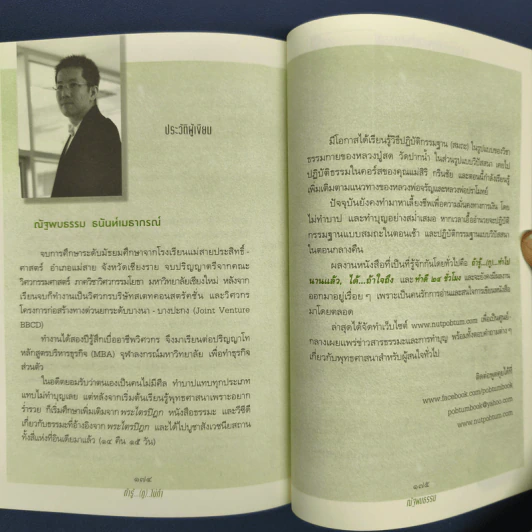 ประวัติผู้เขียน
ณัฐพบธรรม ธนินท์เมธาภรณ์
จบการศึกษาระดับมัธยมศึกษาจากโรงเรียนแม่สายประสิทธิ์-
ศาสตร์ อำเภอแม่สาย จังหวัดเชียงราย จบปริญญาตรีจากคณะ
วิศวกรรมศาสตร์ ภาควิชาวิศวกรรมโยธา มหาวิทยาลัยเชียงใหม่ หลังจาก
เรียนจบก็ทำงานเป็นวิศวกรบริษัทสเตทคอนสตรัคชั่น และวิศวกร
โครงการก่อสร้างทางด่วนยกระดับบางนา - บางปะกง (Joint Venture
BBCD)
ทำงานได้สองปีรู้สึกเบื่ออาชีพวิศวกร จึงมาเรียนต่อปริญญาโท
หลักสูตรบริหารธุรกิจ (MBA) จุฬาลงกรณ์มหาวิทยาลัย เพื่อทำธุรกิจ
ส่วนตัว
ในอดีตยอมรับว่าตนเองเป็นคนไม่มีศีล ทำบาปแทบทุกประเภท
แทบไม่ทำบุญเลย แต่หลังจากเริ่มต้นเรียนรู้พุทธศาสนาเพราะอยาก
ร่ำรวย ก็เริ่มศึกษาเพิ่มเติมจาก พระไตรปิฎก หนังสือธรรมะ และวีซีดี
เกี่ยวกับธรรมะที่อ้างอิงจาก พระไตรปิฎก และได้ไปบูชาสังเวชนียสถาน
ทั้งสี่แห่งที่อินเดียมาแล้ว (๑๔ คืน ๑๕ วัน)
๑๗๔
มีโอกาสได้เรียนรู้วิธีปฏิบัติกรรมฐาน (สมถะ) ในรูปแบบของวิชา
ธรรมกายของหลวงปู่สด วัดปากน้ำ ในส่วนรูปแบบวิปัสสนา เคยไป
ปฏิบัติธรรมในคอร์สของคุณแม่สิริ กรินชัย และตอนนี้กำลังเรียนรู้
เพิ่มเติมตามแนวทางของหลวงพ่อจรัญและหลวงพ่อปราโมทย์
ปัจจุบันยังคงทำมาหาเลี้ยงชีพเพื่อความมั่นคงทางการเงิน โดย
ไม่ทำบาป และทำบุญอย่างสม่ำเสมอ หากเวลาเอื้ออำนวยจะปฏิบัติ
กรรมฐานแบบสมถะในตอนเช้า และปฏิบัติกรรมฐานแบบวิปัสสนา
ในตอนกลางคืน
ผลงานหนังสือที่เป็นที่รู้จักกันโดยทั่วไปคือ ถ้ารู้...(กู)...ทำไป
นานแล้ว, ได้...ถ้าใจถึง และ ทำดี ๒๔ ชั่วโมง และจะยังคงมีผลงาน
ออกมาอยู่เรื่อย ๆ เพราะเป็นคนรักการอ่านและสนใจการเขียนหนังสือ
มาโดยตลอด
ล่าสุดได้จัดทำเว็บไซต์ www.nutpobtum.com เพื่อเป็นศูนย์-
กลางเผยแพร่ข่าวสารธรรมะและการทำบุญ พร้อมทั้งตอบคำถามต่าง ๆ
เกี่ยวกับพุทธศาสนาสำหรับผู้สนใจทั่วไป
ติดต่อพูดคุยได้ที่
www.facebook.com/pobtumbook
pobtumbook@yahoo.com
www.nutpobtum.com
๑๗๕
ณัฐพบธรรม